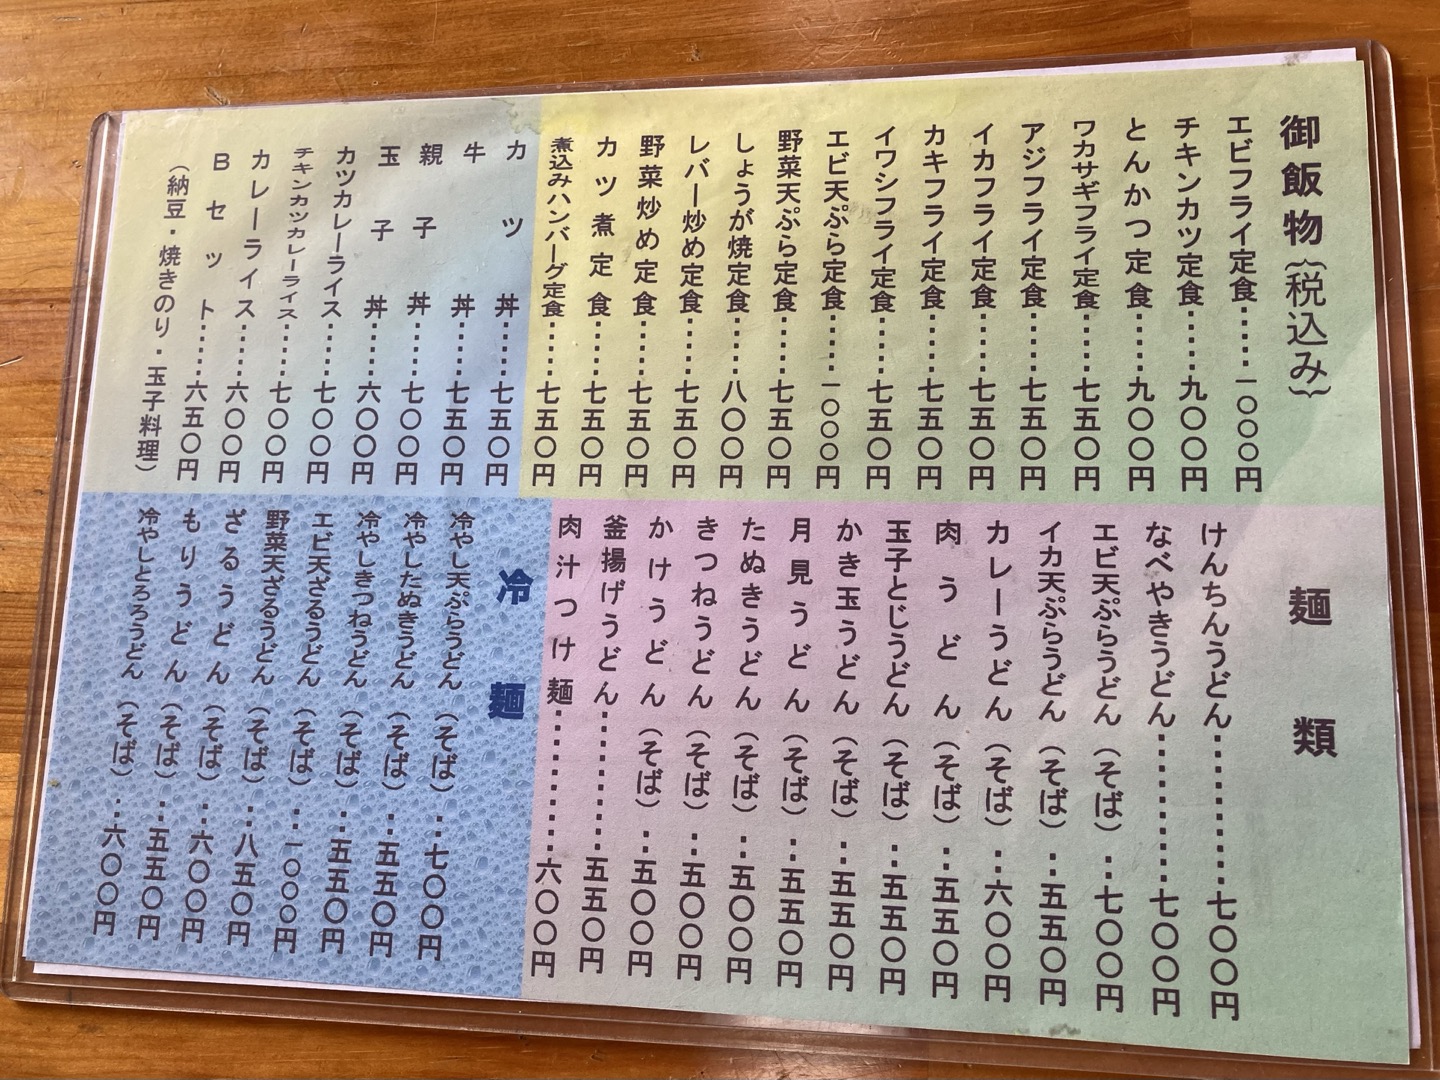 御飯物(税込み)
エビフライ定食……一〇〇〇円
チキンカツ定食……九〇〇円
とんかつ定食……九〇〇円
ワカサギフライ定食……七五〇円
アジフライ定食……七五〇円
イカフライ定食……七五〇円
カキフライ定食……七五〇円
イワシフライ定食……七五〇円
エビ天ぷら定食……一〇〇〇円
野菜天ぷら定食……七五〇円
しょうが焼定食……八〇〇円
レバー炒め定食……七五〇円
野菜炒め定食……七五〇円
カツ煮定食……七五〇円
煮込みハンバーグ定食……七五〇円
カツ丼……七五〇円
牛丼……七五〇円
親子丼……七〇〇円
玉子丼……六〇〇円
カツカレーライス……七〇〇円
チキンカツカレーライス……七〇〇円
カレーライス……六〇〇円
Bセット……六五〇円
(納豆・焼きのり・玉子料理)
麺類
けんちんうどん…………七〇〇円
なべやきうどん…………七〇〇円
エビ天ぷらうどん(そば)‥七〇〇円
イカ天ぷらうどん(そば)‥五五〇円
カレーうどん(そば)‥六〇〇円
肉うどん(そば)‥五五〇円
玉子とじうどん(そば)‥五五〇円
かき玉うどん(そば)‥五五〇円
月見うどん(そば)‥五五〇円
たぬきうどん(そば)‥五〇〇円
きつねうどん(そば)‥五〇〇円
かけうどん(そば)‥五〇〇円
釜揚げうどん…………五五〇円
肉汁つけ麺…………六〇〇円
冷麺
冷やし天ぷらうどん(そば)‥七〇〇円
冷やしたぬきうどん(そば)‥五五〇円
冷やしきつねうどん(そば)‥五五〇円
エビ天ざるうどん(そば)‥一〇〇〇円
野菜天ざるうどん(そば)‥八五〇円
ざるうどん(そば)‥六〇〇円
もりうどん(そば)‥五五〇円
冷やしとろろうどん(そば)‥六〇〇円